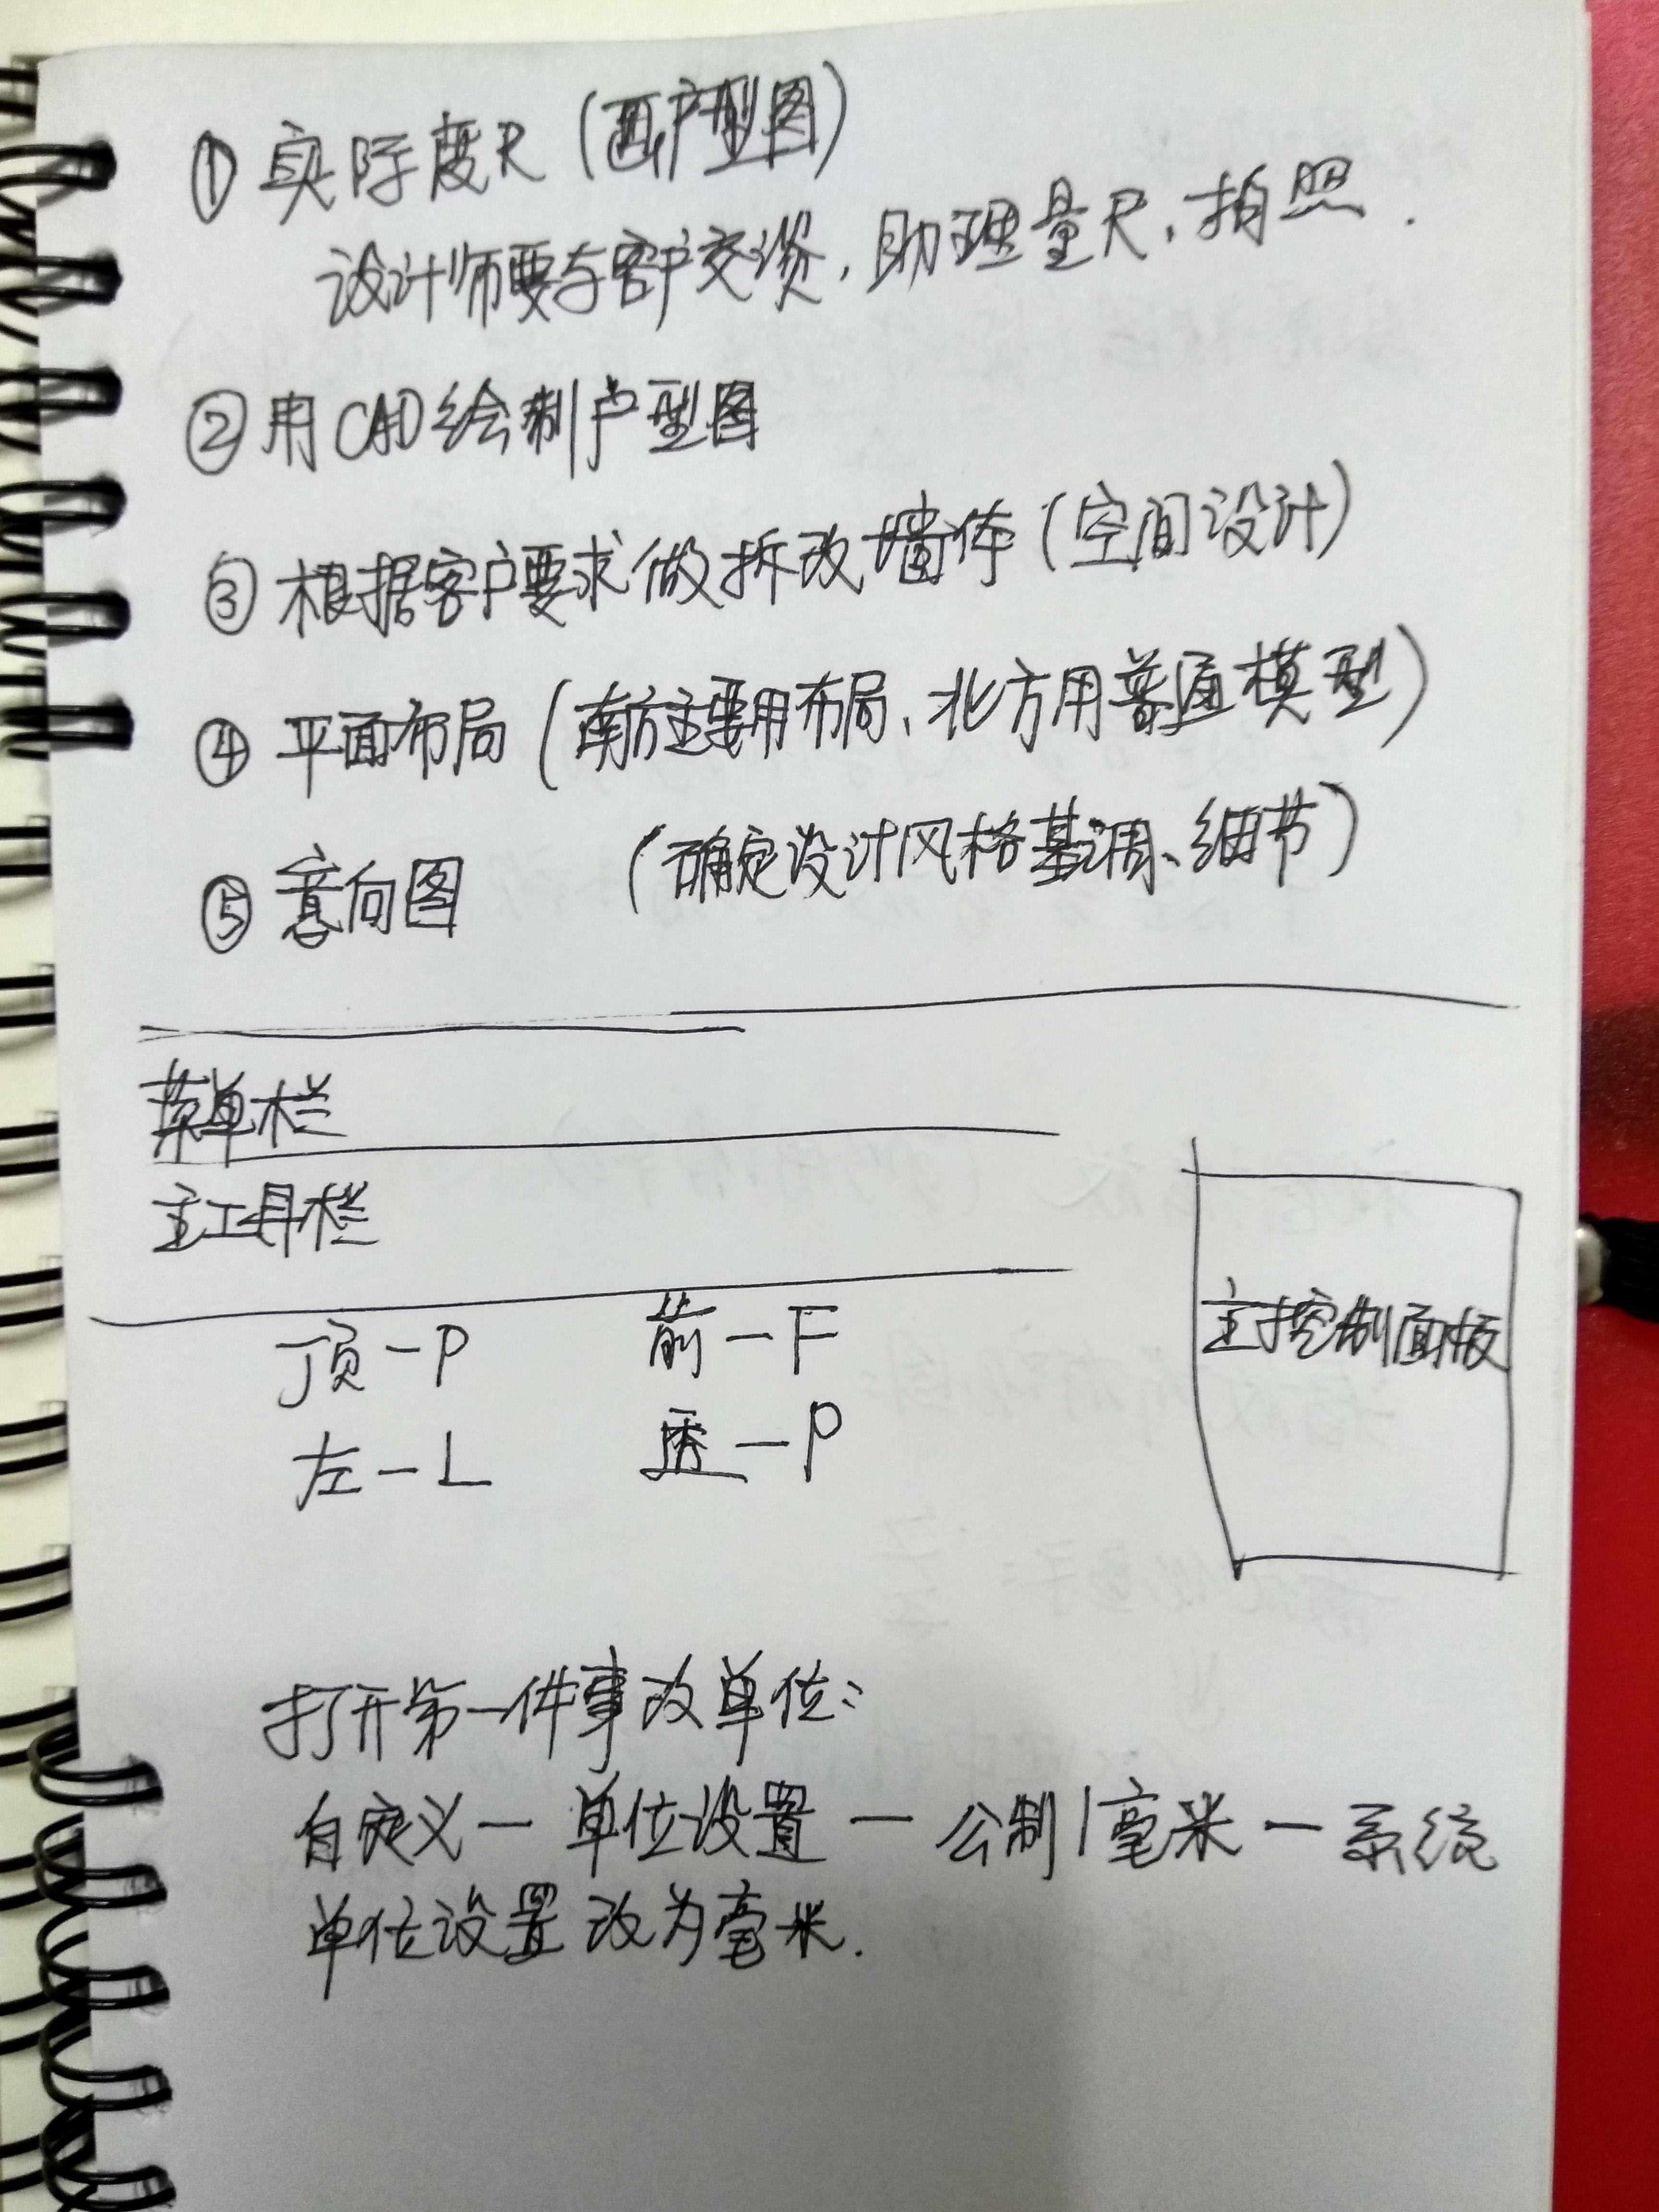 ① 实际度尺（画户型图）
设计师要与客户交谈，助理量尺、拍照．
② 用CAD绘制户型图
③ 根据客户要求做拆改墙体（空间设计）
④ 平面布局（南方主要用布局、北方用普通模型）
⑤ 意向图 （确定设计风格基调、细节）
菜单栏
主工具栏
主控制面板
顶－P 前－F
左－L 透－P
打开第一件事改单位：
自定义－单位设置－公制/毫米－系统
单位设置改为毫米．